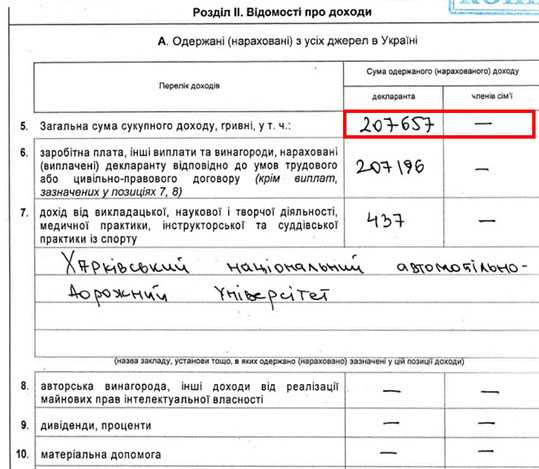 Розділ II. Відомості про доходи
А. Одержані (нараховані) з усіх джерел в Україні
Перелік доходів
Сума одержаного (нарахованого) доходу
декларанта
членів сім'ї
5. Загальна сума сукупного доходу, гривні, у т. ч.: 207657 —
6. заробітна плата, інші виплати та винагороди, нараховані
(виплачені) декларанту відповідно до умов трудового
або цивільно-правового договору (крім виплат,
зазначених у позиціях 7, 8)
207196 —
7. дохід від викладацької, наукової і творчої діяльності,
медичної практики, інструкторської та суддівської
практики із спорту
437 —
Харківський національний автомобільно-
дорожний університет
(назва закладу, установи тощо, в яких одержано (нараховано) зазначені у цій позиції доходи)
8. авторська винагорода, інші доходи від реалізації
майнових прав інтелектуальної власності
— —
9. дивіденди, проценти — —
10. матеріальна допомога — —